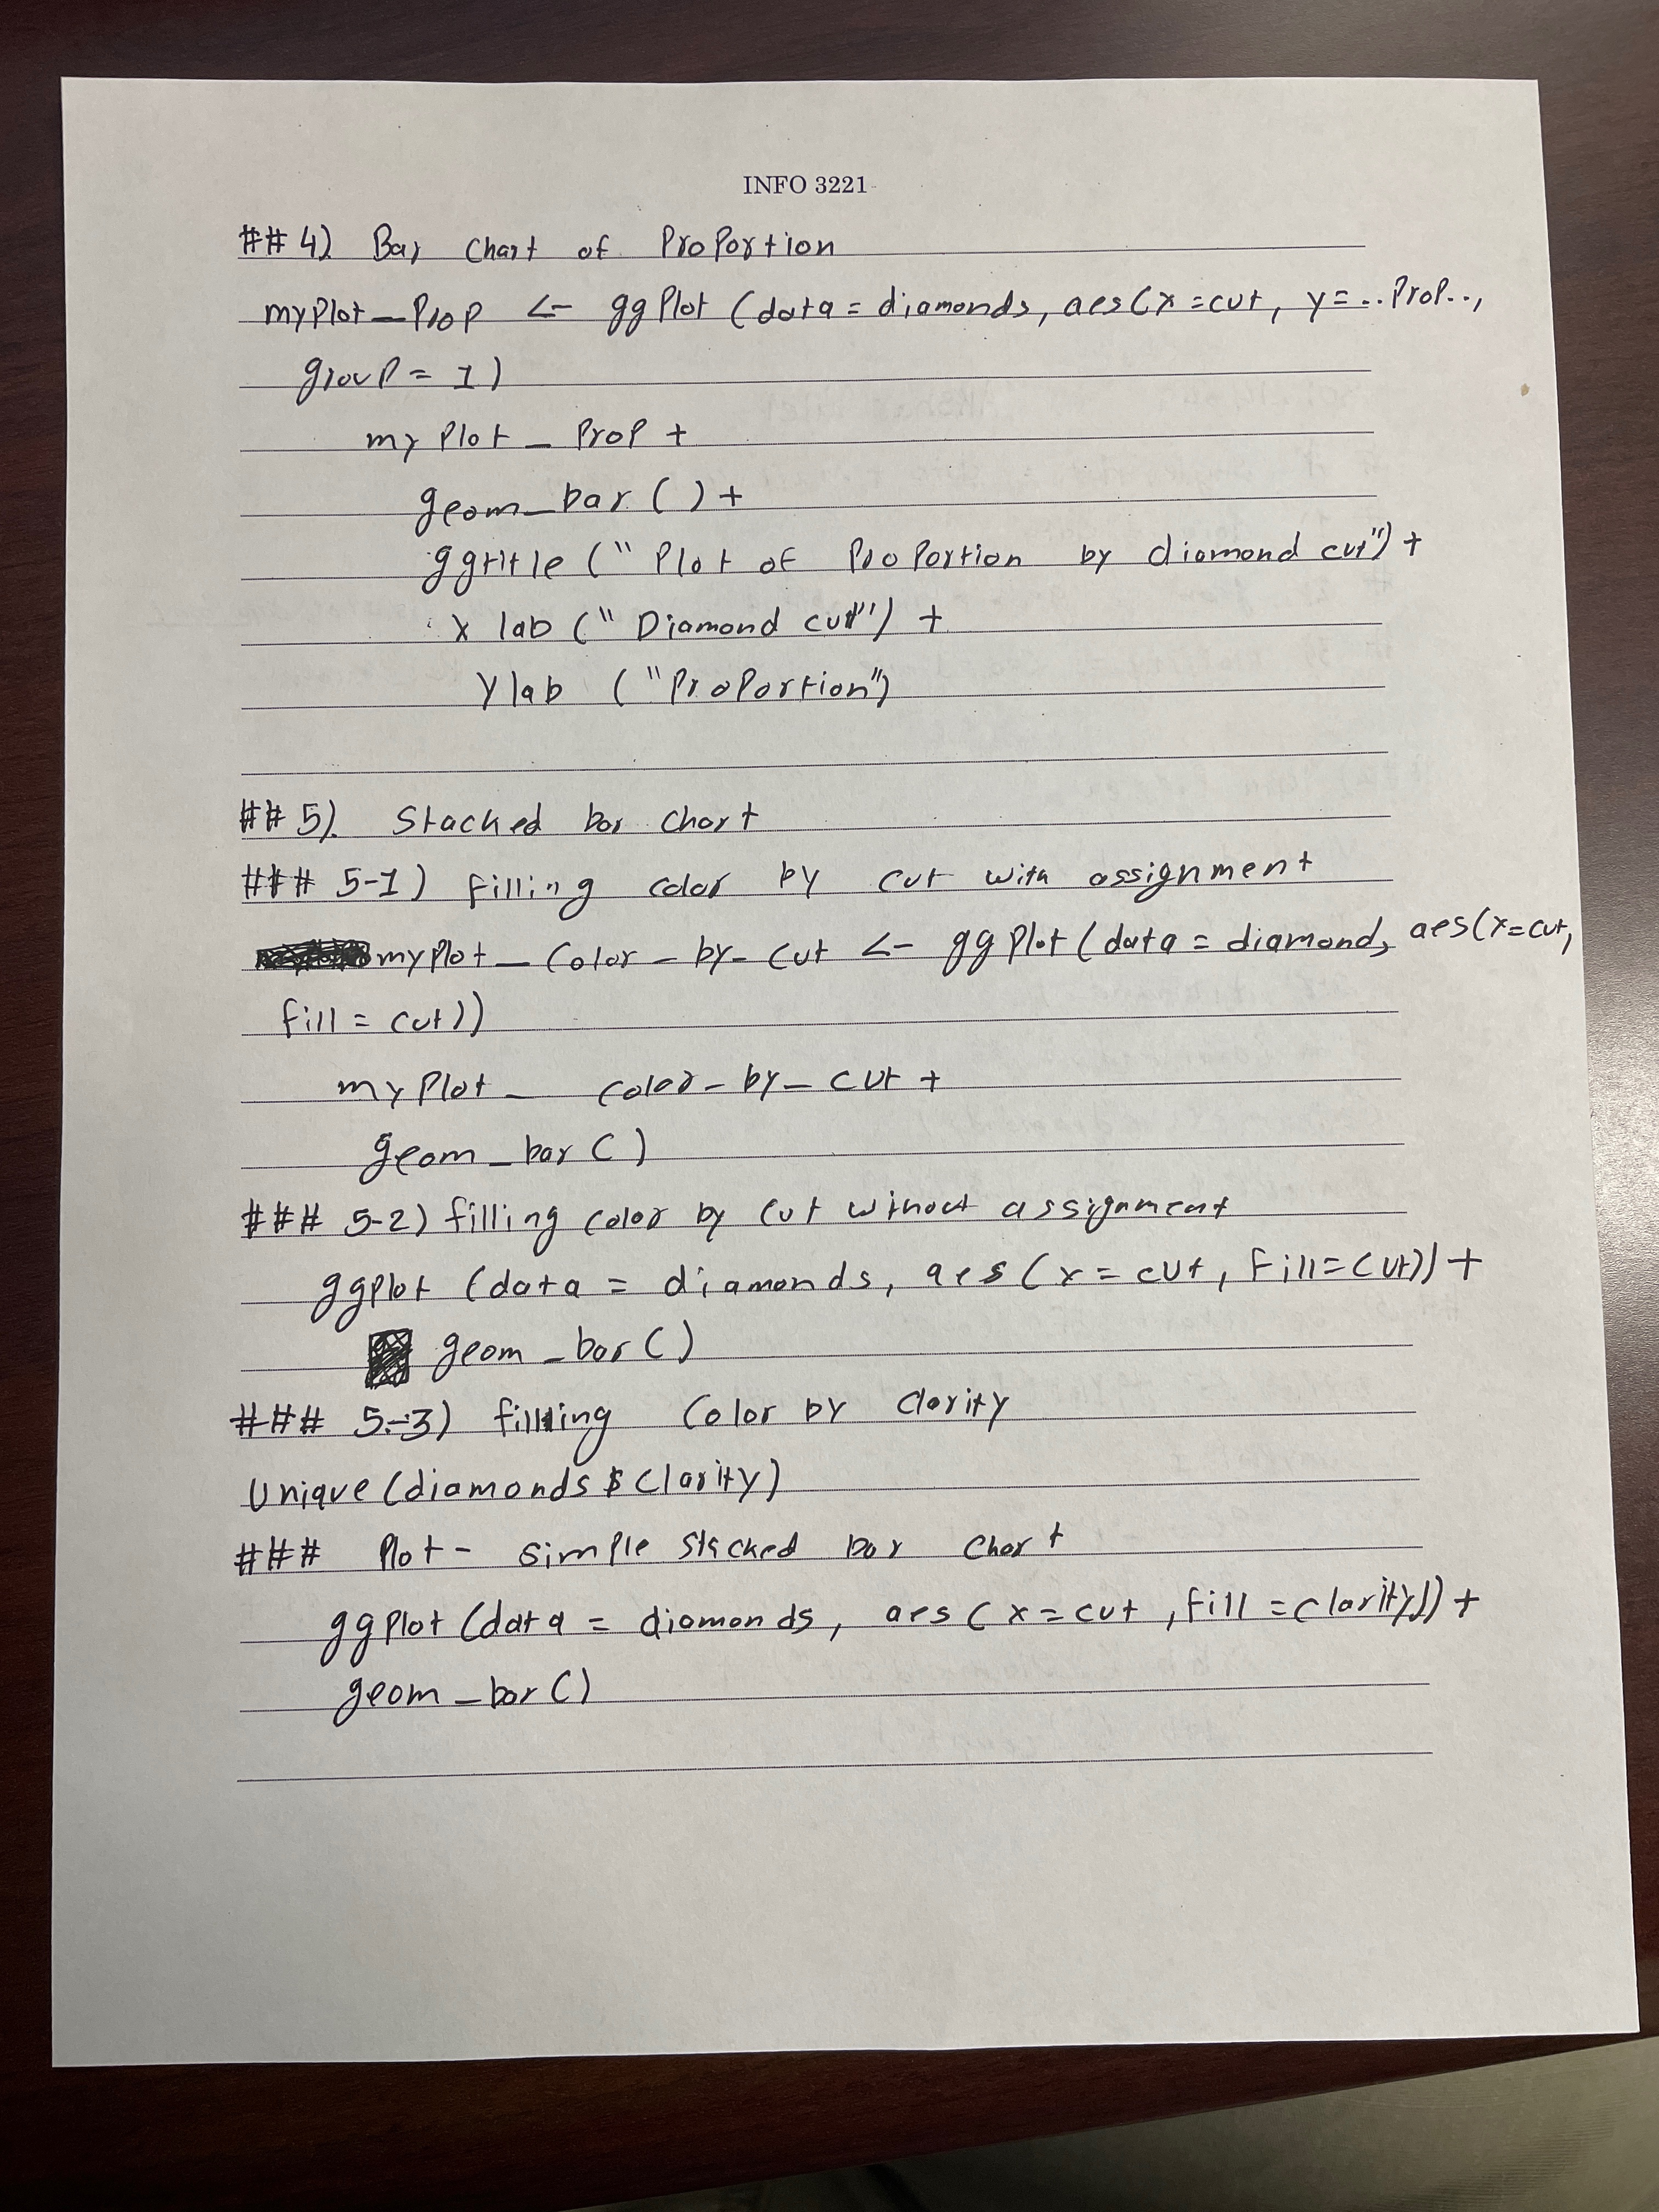 INFO 3221
## 4) Bar Chart of Proportion
myplot_Prop <- ggplot (data = diamonds, aes(x=cut, y=..Prop..,
group = 1)
my Plot_Prop +
geom_bar () +
ggtitle (" Plot of Proportion by diamond cut") +
x lab (" Diamond cut") +
Y lab ("Proportion")
## 5). Stacked bar chart
### 5-1) filling color by cut with assignment
myplot_color-by-cut <- ggplot (data = diamond, aes(x=cut,
fill = cut))
my Plot_ color-by-cut +
geom_bar ()
### 5-2) filling color by cut without assignment
ggplot (data = diamonds, aes (x = cut, Fill=cut)) +
geom_bar ()
### 5-3) filling Color by clarity
Unique (diamonds $ Clarity)
### Plot - simple stacked bar chart
ggplot (data = diamonds, aes (x = cut, fill = clarity)) +
geom_bar ()